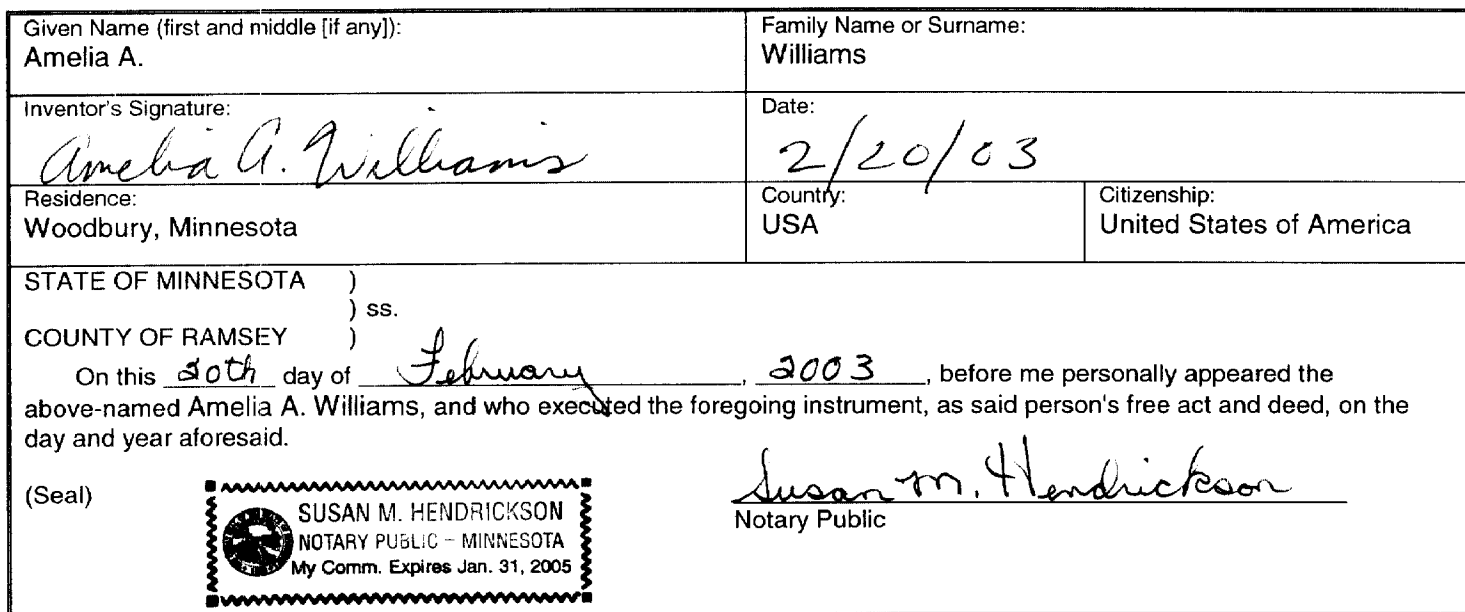 Given Name (first and middle [if any]):
Amelia A.
Family Name or Surname:
Williams
Inventor's Signature:
Amelia A. Williams
Date:
2/20/03
Residence:
Woodbury, Minnesota
Country:
USA
Citizenship:
United States of America
STATE OF MINNESOTA )
) ss.
COUNTY OF RAMSEY )
On this 20th day of February, 2003, before me personally appeared the
above-named Amelia A. Williams, and who executed the foregoing instrument, as said person's free act and deed, on the
day and year aforesaid.
(Seal)
SUSAN M. HENDRICKSON
NOTARY PUBLIC - MINNESOTA
My Comm. Expires Jan. 31, 2005
Susan M. Hendrickson
Notary Public